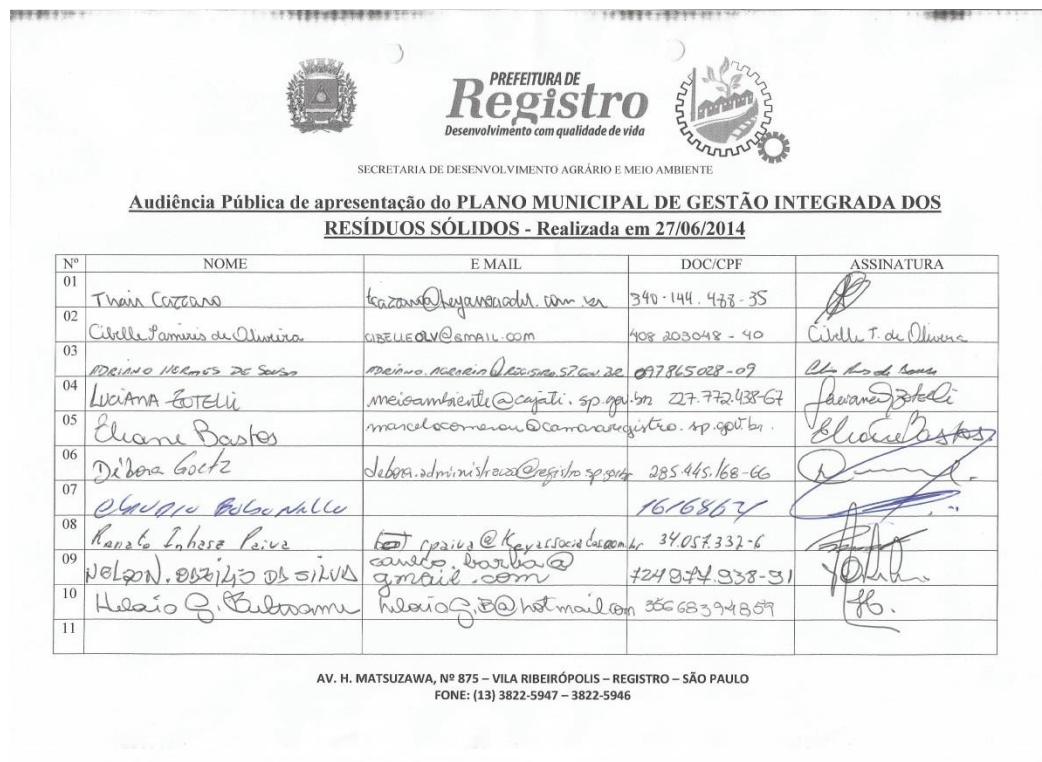 PREFEITURA DE
Registro
Desenvolvimento com qualidade de vida
SECRETARIA DE DESENVOLVIMENTO AGRÁRIO E MEIO AMBIENTE
Audiência Pública de apresentação do PLANO MUNICIPAL DE GESTÃO INTEGRADA DOS
RESÍDUOS SÓLIDOS - Realizada em 27/06/2014
Nº NOME E MAIL DOC/CPF ASSINATURA
01 340-144.488-35
02 Cibelle Tamiris de Oliveira CIBELLEOLV@GMAIL.COM 408 203048 - 40 Cibelle T. de Oliveira
03 ADRIANO HERMES DE SOUSA ADRIANO.AGRARIO@REGISTRO.SP.GOV.BR 097865028-09
04 LUCIANA ZOTELLI meioambiente@cajati.sp.gov.br 227.772.438-67 Luciana Zotelli
05 Eliane Bastos marcelocomeron@camararegistro.sp.gov.br. Eliane Bastos
06 Débora Goetz debora.administracao@registro.sp.gov.br 285.445.168-66
07
08 Renato Inhasz Paiva rpaiva@keyassociados.com.br 34.057.332-6
09 caneco.barba@
gmail.com 724977.938-91
10 heloioG.B@hotmail.com 35668394859
11
AV. H. MATSUZAWA, Nº 875 – VILA RIBEIRÓPOLIS – REGISTRO – SÃO PAULO
FONE: (13) 3822-5947 – 3822-5946